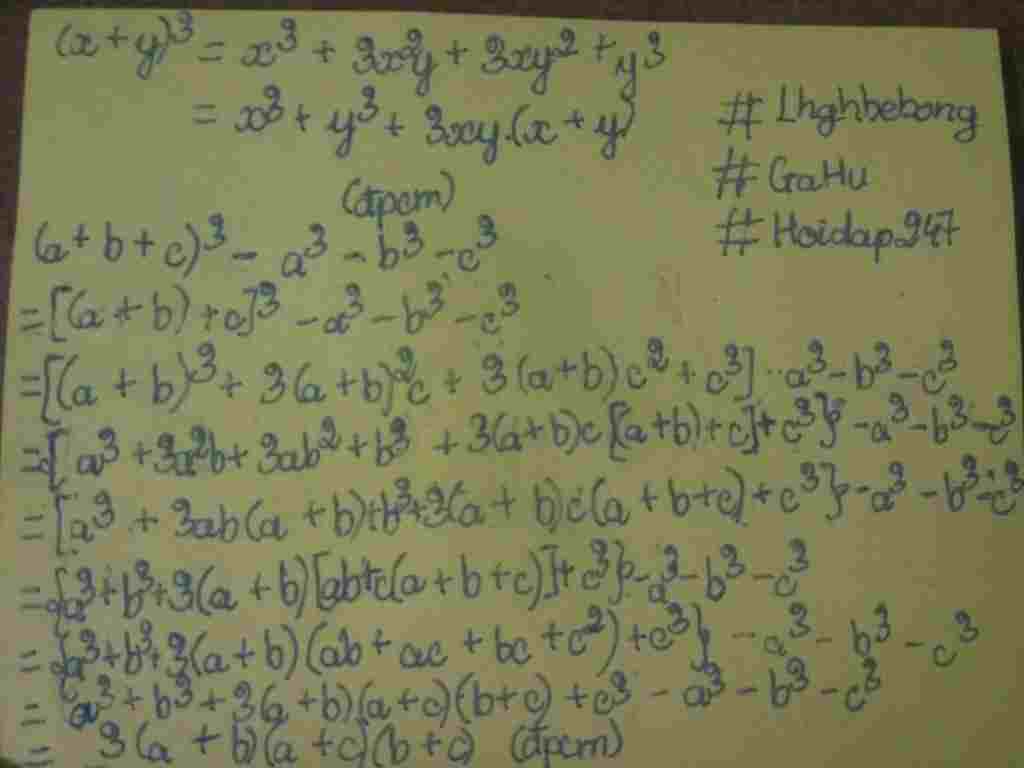 (x + y)³ = x³ + 3x²y + 3xy² + y³
= x³ + y³ + 3xy.(x + y)
# Lhghbebong
# GaHu
(đpcm)
# Hoidap247
(a + b + c)³ - a³ - b³ - c³
= [(a + b) + c]³ - a³ - b³ - c³
= [(a + b)³ + 3(a + b)²c + 3(a + b)c² + c³] - a³ - b³ - c³
= { a³ + 3a²b + 3ab² + b³ + 3(a + b)c [(a + b) + c] + c³} - a³ - b³ - c³
= [a³ + 3ab(a + b) + b³ + 3(a + b)c(a + b + c) + c³} - a³ - b³ - c³
= {a³ + b³ + 3(a + b)[ab + c(a + b + c)] + c³} - a³ - b³ - c³
= {a³ + b³ + 3(a + b)(ab + ac + bc + c²) + c³} - a³ - b³ - c³
= a³ + b³ + 3(a + b)(a + c)(b + c) + c³ - a³ - b³ - c³
= 3(a + b)(a + c)(b + c) (đpcm)